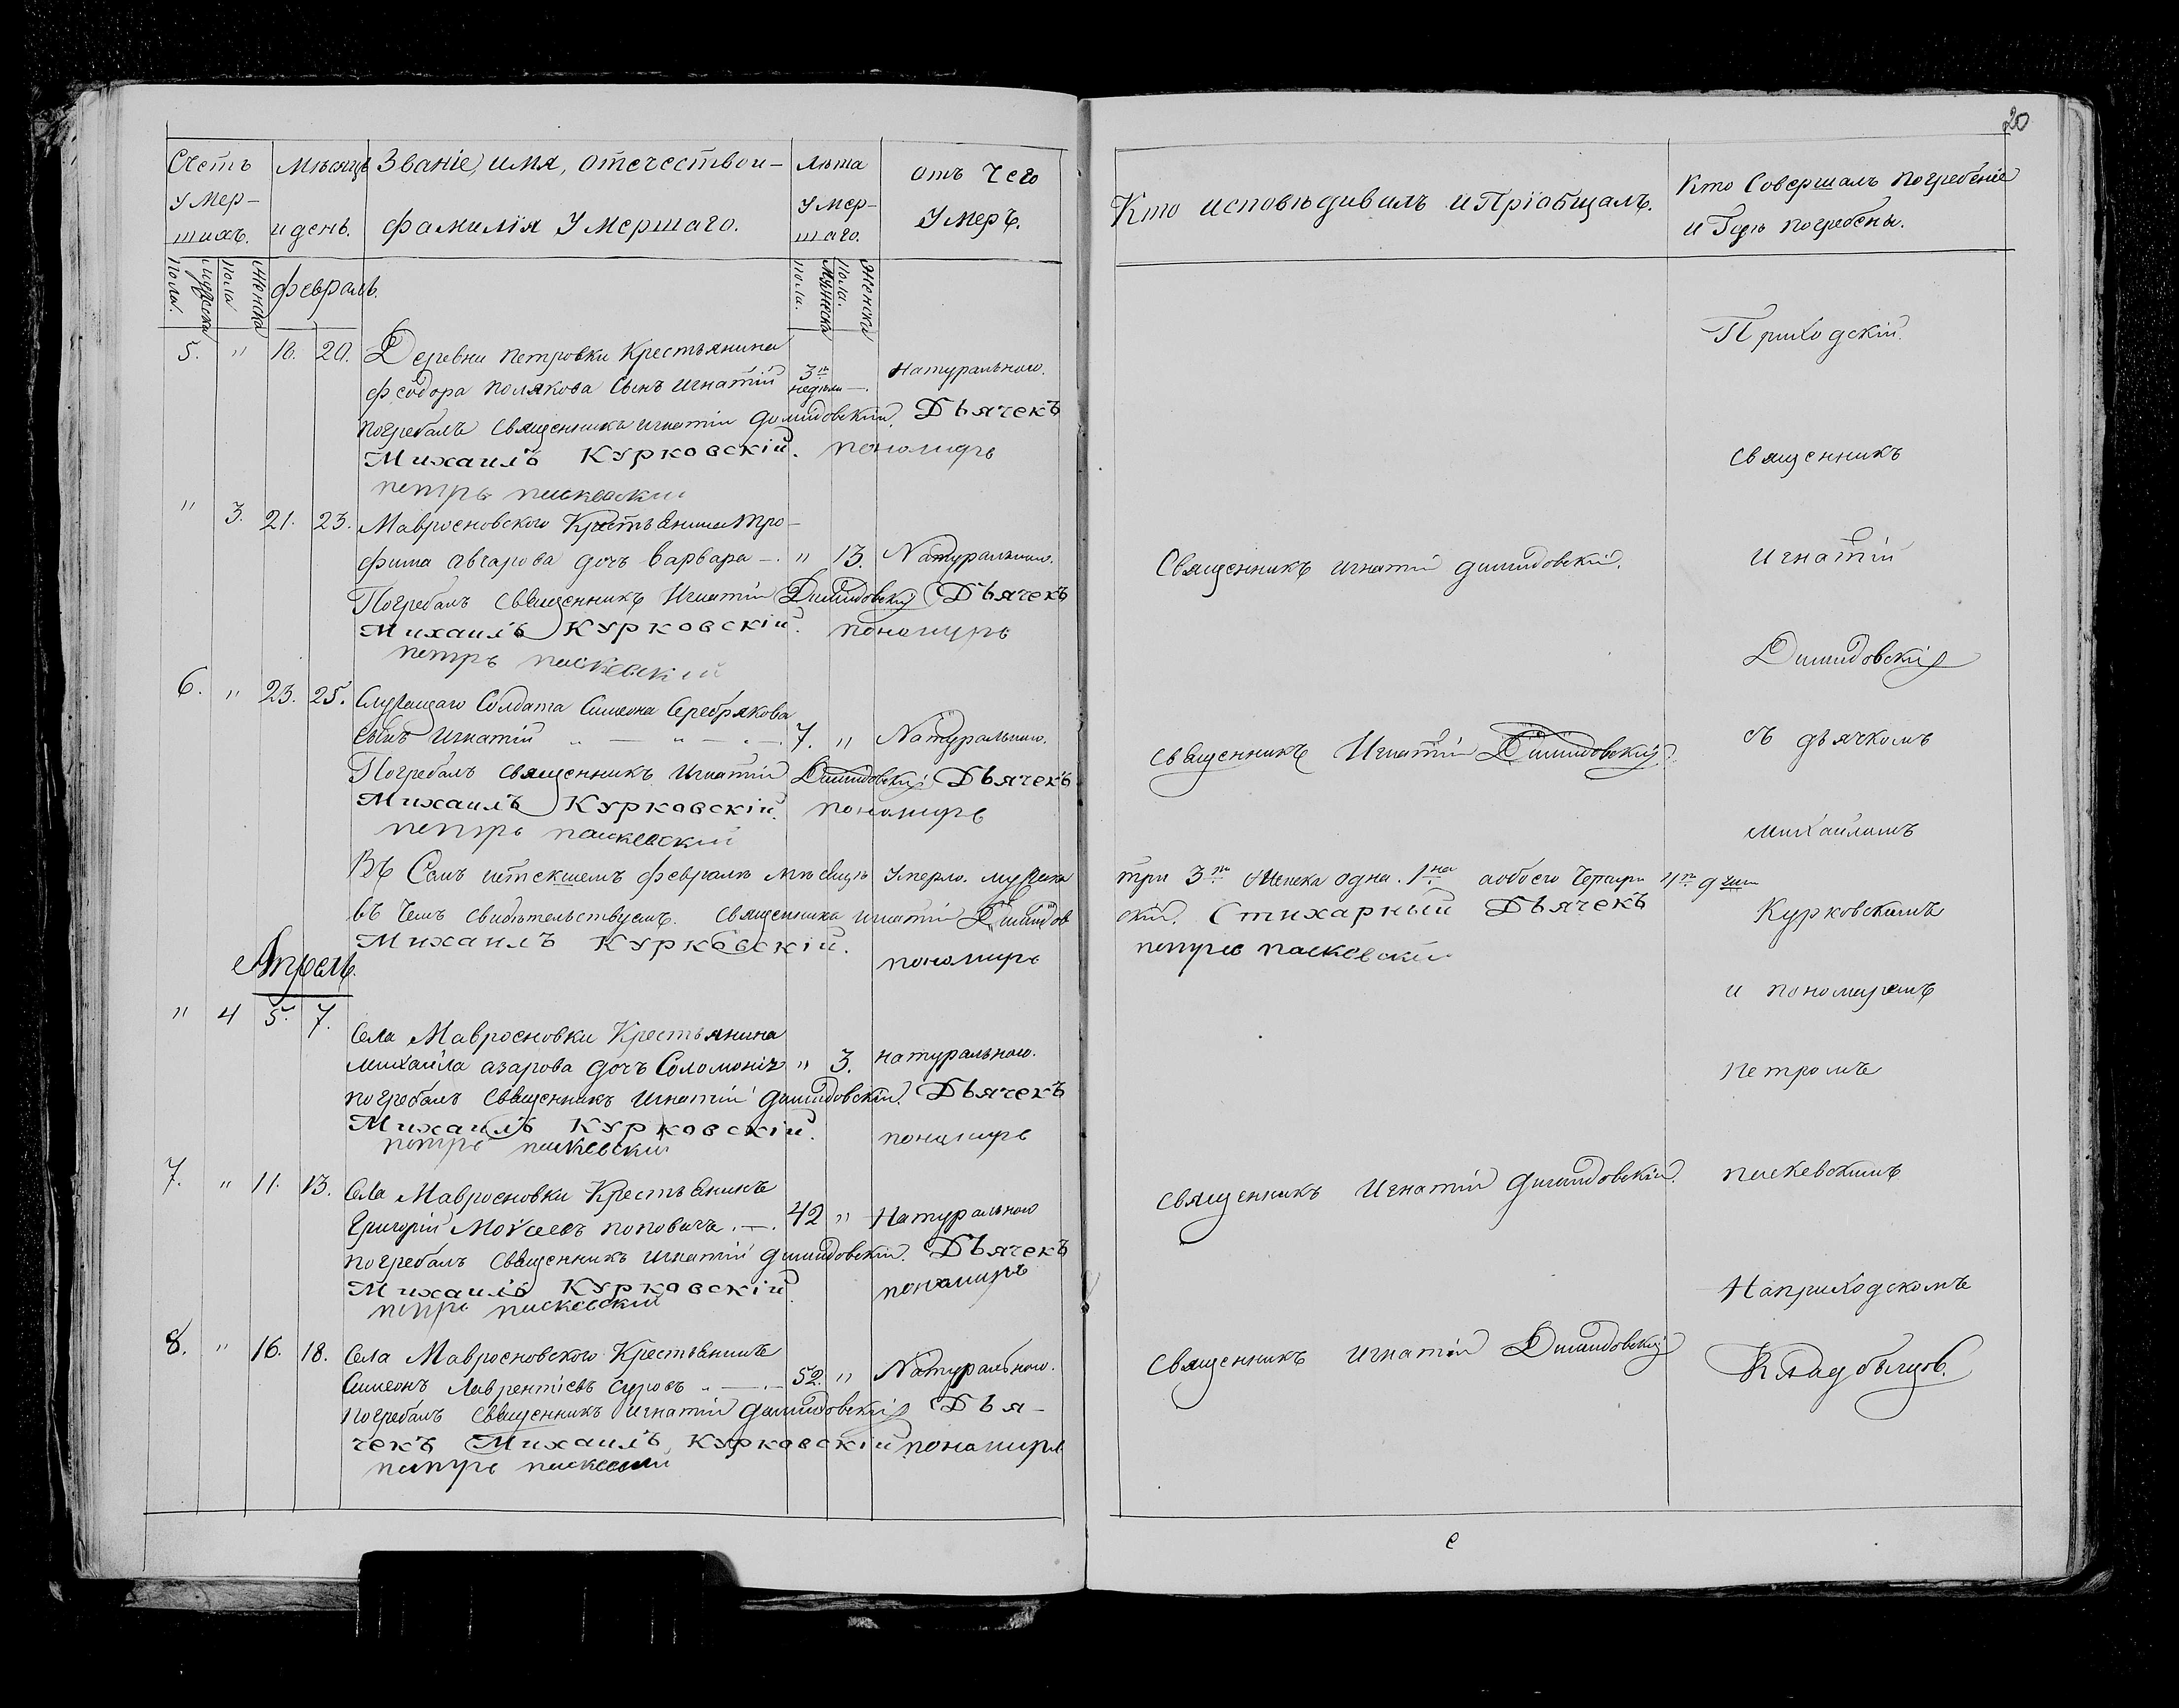 20
Счетъ умер-шихъ.
Мѣсяцъ и день.
Званіе, имя, отечество и-
фамилія Умершаго.
Лѣта умер-шаго.
отъ Чего Умеръ.
Кто исповѣдивалъ и Пріобщалъ.
Кто Совершалъ погребеніе
и Гдѣ погребены.
Мужеска Пола.
Женска Пола
февраль.
Мужеска Пола.
Женска Пола.
5. " 18. 20. Деревни Петровки Крестьянина
Феодора Полякова Сынъ Игнатій 3н недѣли —. Натуральною.
погребалъ Священникъ Игнатій Димидовскій. Дьячекъ
Михаилъ Курковскій. пономарь
петръ паскевскій
" 3. 21. 23. Мавросновского Крестьянина Тро-
фима Авчарова дочь Варвара —. " 13. Натуральною.
Погребалъ Священникъ Игнатій Димидовскій Дьячекъ
Михаилъ Курковскій. пономарь
петръ паскевскій
6. " 23. 25. Служащаго Солдата Симеона Серебрякова
Сынъ Игнатій " — " — " — 7. " Натуральною.
Погребалъ Священникъ Игнатій Димидовскій Дьячекъ
Михаилъ Курковскій. пономарь
петръ паскевскій
Въ Семъ истекшемъ февралѣ мѣсяцѣ Умерло. мужеска
три 3и Женска одна. 1на а обоего Четыри 4и души
въ Чемъ свидѣтельствуемъ. Священникъ Игнатій Димидов
скій. Стихарный Дьячекъ
Михаилъ Курковскій. пономарь
петръ паскевскій
Апрель.
" 4 5. 7. Села Мавросновки Крестьянина
Михаила Азарова дочь Соломонія " 3. натуральною.
погребалъ Священникъ Игнатій Димидовскій. Дьячекъ
Михаилъ Курковскій. пономарь
петръ паскевскій
7. " 11. 13. Села Мавросновки Крестьянинъ
Григорій поповичъ . —. 42 " Натуральною
погребалъ Священникъ Игнатій Димидовскій. Дьячекъ
Михаилъ Курковскій пономарь
петръ паскевскій
8. " 16. 18. Села Мавросновского Крестьянинъ
Симеонъ Лаврентіевъ Суровъ " — 52. " Натуральною.
погребалъ Священникъ Игнатій Димидовскій Дья-
чекъ Михаилъ Курковскій пономарь
петръ паскевскій
Священникъ Игнатій Димидовскій.
Священникъ Игнатій Димидовскій.
Священникъ Игнатій Димидовскій.
Священникъ Игнатій Димидовскій
Приходскій.
Священникъ
Игнатій
Димидовскій
съ дьячкомъ
Михаиломъ
Курковскимъ
и пономаремъ
Петромъ
паскевскимъ
На приходскомъ
Кладбищѣ.